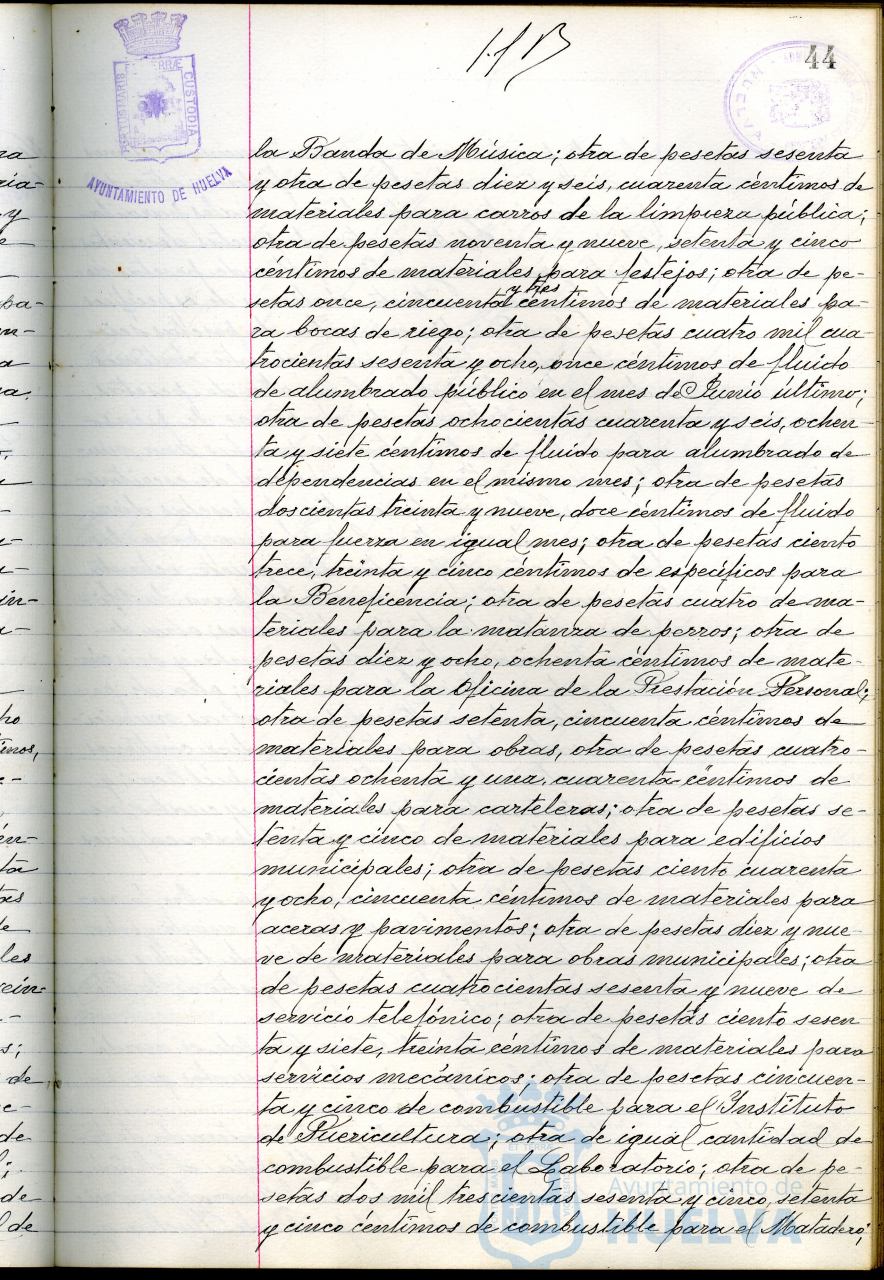 44
PORTUS MARIS
TERRÆ
CUSTODIA
AYUNTAMIENTO DE HUELVA
la Banda de Música; otra de pesetas sesenta
y otra de pesetas diez y seis, cuarenta céntimos de
materiales para carros de la limpieza pública;
otra de pesetas noventa y nueve, setenta y cinco
céntimos de materiales para festejos; otra de pe-
y tres
setas once, cincuenta céntimos de materiales pa-
ra bocas de riego; otra de pesetas cuatro mil cua-
trocientas sesenta y ocho, once céntimos de fluido
de alumbrado público en el mes de Junio último;
otra de pesetas ochocientas cuarenta y seis, ochen-
ta y siete céntimos de fluido para alumbrado de
dependencias en el mismo mes; otra de pesetas
doscientas treinta y nueve, doce céntimos de fluido
para fuerza en igual mes; otra de pesetas ciento
trece, treinta y cinco céntimos de específicos para
la Beneficencia; otra de pesetas cuatro de ma-
teriales para la matanza de perros; otra de
pesetas diez y ocho, ochenta céntimos de mate-
riales para la Oficina de la Prestación Personal;
otra de pesetas setenta, cincuenta céntimos de
materiales para obras, otra de pesetas cuatro-
cientas ochenta y una, cuarenta céntimos de
materiales para carteleras; otra de pesetas se-
tenta y cinco de materiales para edificios
municipales; otra de pesetas ciento cuarenta
y ocho, cincuenta céntimos de materiales para
aceras y pavimentos; otra de pesetas diez y nue-
ve de materiales para obras municipales; otra
de pesetas cuatrocientas sesenta y nueve de
servicio telefónico; otra de pesetas ciento sesen
ta y siete, treinta céntimos de materiales para
servicios mecánicos; otra de pesetas cincuen-
ta y cinco de combustible para el Instituto
de Puericultura; otra de igual cantidad de
combustible para el Laboratorio; otra de pe-
setas dos mil trescientas sesenta y cinco, setenta
y cinco céntimos de combustible para el Matadero;
Ayuntamiento de
HUELVA